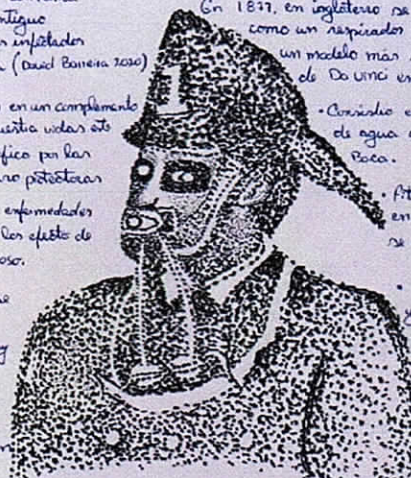 ntiguo
s infectados
(David Barreira 2020)
en un complemento
vidas este
fico por las
ro protectoras
enfermedades
los efecto de
oso.
En 1877, en inglaterra se
como un respirador
un modelo más
de Da Vinci en
• Consistio
de agua
Boca.
en
se
1